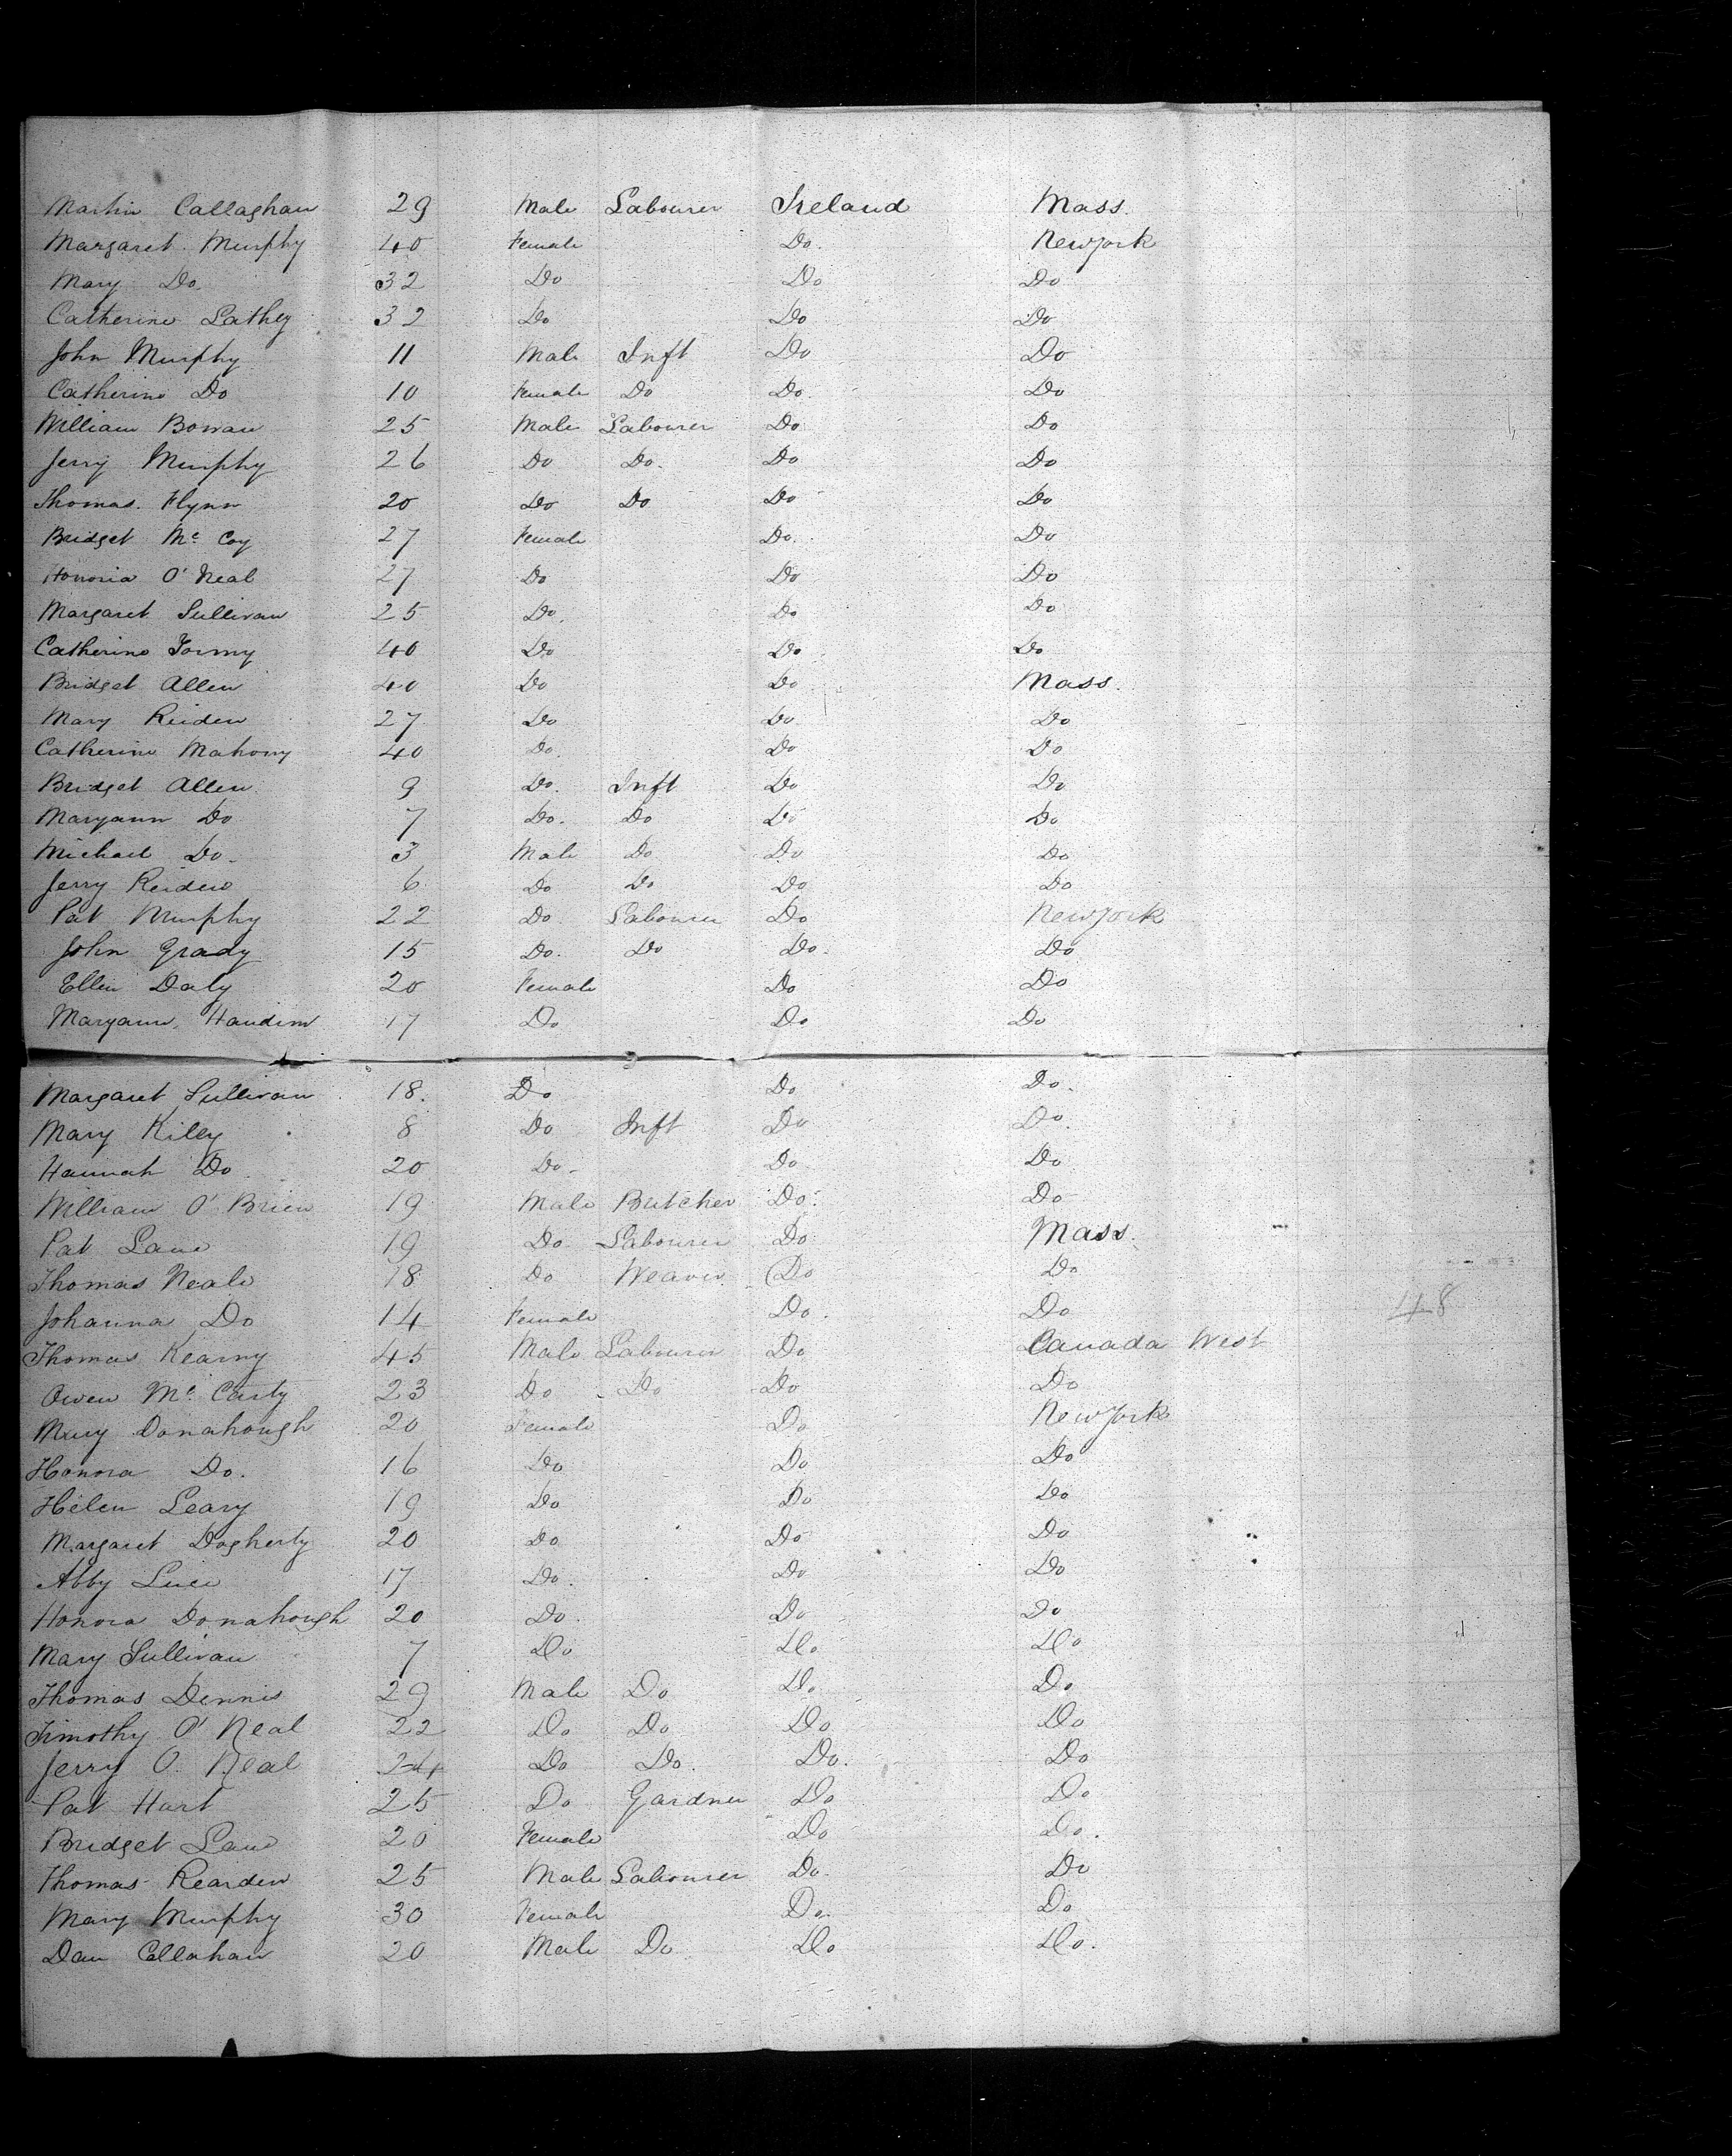 Martin Callaghan 29 Male Labourer Ireland Mass.
Margaret Murphy 40 Female Do. Newyork
Mary Do. 32 Do Do Do
Catherine Lathey 32 Do Do Do
John Murphy 11 Male Inft Do Do
Catherine Do 10 Female Do Do. Do
William Bowan 25 Male Labourer Do Do
Jerry Murphy 26 Do Do. Do Do
Thomas. Flynn 20 Do Do Do Do
Bridget Mc Coy 27 Female Do. Do
Honoria O' Neal 27 Do Do Do
Margaret Sullivan 25 Do. Do Do
Catherine 40 Do Do Do
Bridget Allen 40 Do Do Mass.
Mary Reiden 27 Do Do. Do
Catherine Mahony 40 Do. Do Do
Bridget Allen 9 Do. Inft Do Do
Maryann Do 7 Do. Do Do Do
Michael Do. 3 Male Do Do Do
Jerry Reiden 6 Do Do Do Do
Pat Murphy 22 Do Labourer Do Newyork
John Grady 15 Do. Do Do. Do
Ellen Daly 20 Female Do Do
Maryann 17 Do Do Do
Margaret Sullivan 18. Do Do Do.
Mary Killy 8 Do Inft Do Do.
Hannah Do 20 Do. Do Do
William O' Brien 19 Male Butcher Do. Do
Pat Lane 19 Do Labourer Do Mass.
Thomas Neale 18 Do Weaver Do Do
Johanna Do 14 Female Do. Do 48
Thomas Kearny 45 Male Labourer Do Canada West
Owen Mc Carty 23 Do Do Do Do
Mary Donahough 20 Female Do Newyork
Honora Do. 16 Do Do Do
Helen Leary 19 Do Do Do
Margaret Dogherty 20 Do Do Do
Abby 17 Do. Do Do
Honora Donahough 20 Do. Do Do
Mary Sullivan 7 Do Do Do
Thomas Dennis 29 Male Do Do Do
Timothy O' Neal 22 Do Do Do Do
Jerry O. Neal 24 Do Do. Do. Do
Pat Hart 25 Do Gardner Do Do
Bridget Lane 20 Female Do Do.
Thomas Rearden 25 Male Labourer Do. Do
Mary Murphy 30 Female Do. Do
Dan Callahan 20 Male Do Do Do.